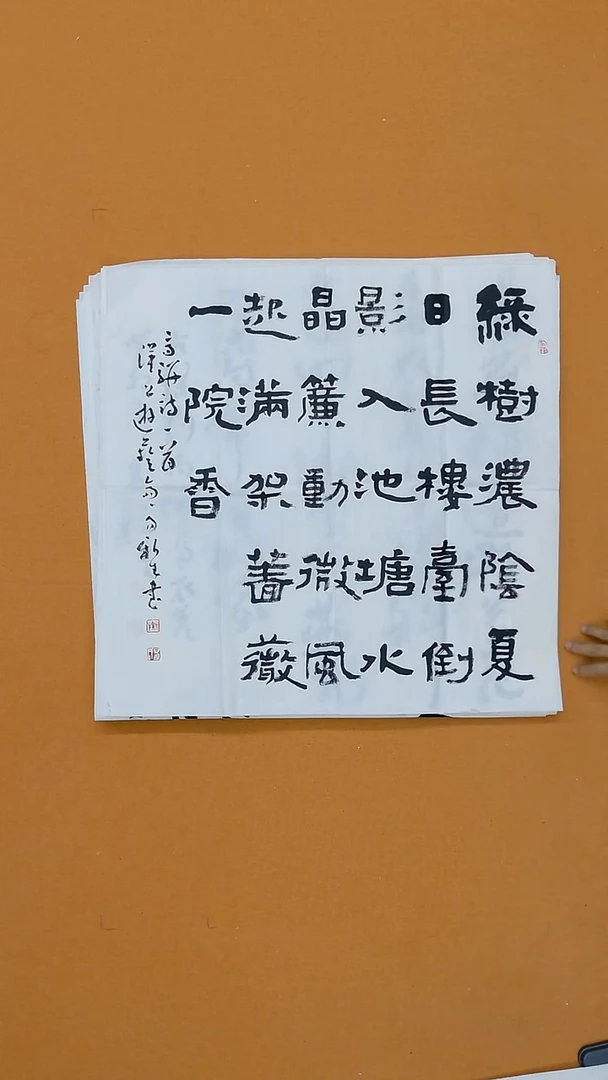 綠樹濃陰夏
日長樓臺倒
影入池塘水
晶簾動微風
起滿架薔薇
一院香
高駢詩一首
書